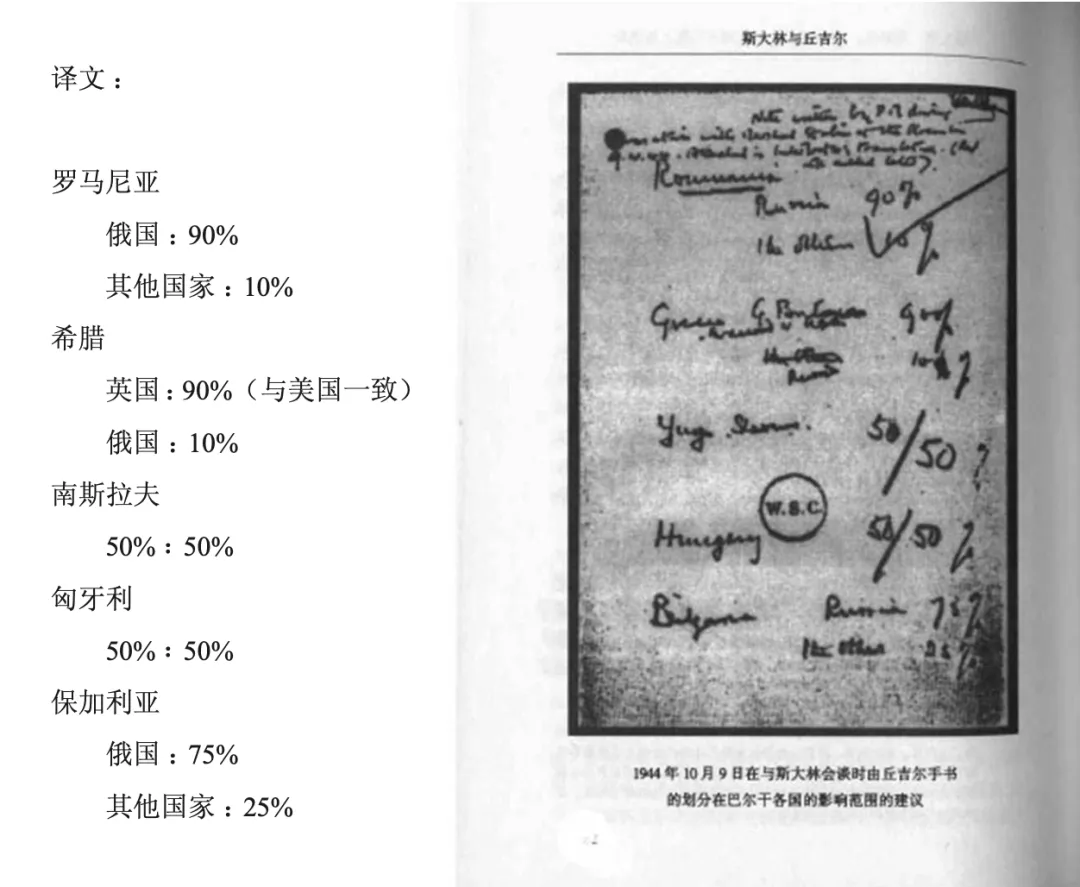 译文：
罗马尼亚
俄国：90%
其他国家：10%
希腊
英国：90%（与美国一致）
俄国：10%
南斯拉夫
50%：50%
匈牙利
50%：50%
保加利亚
俄国：75%
其他国家：25%
斯大林与丘吉尔
Roumania
Russia 90%
The others 10%
Greece G. Britain 90%
Russia 10%
Yugo 50/50%
W.S.C.
Hungary 50/50%
Bulgaria Russia 75%
The others 25%
1944年10月9日在与斯大林会谈时由丘吉尔手书
的划分在巴尔干各国的影响范围的建议